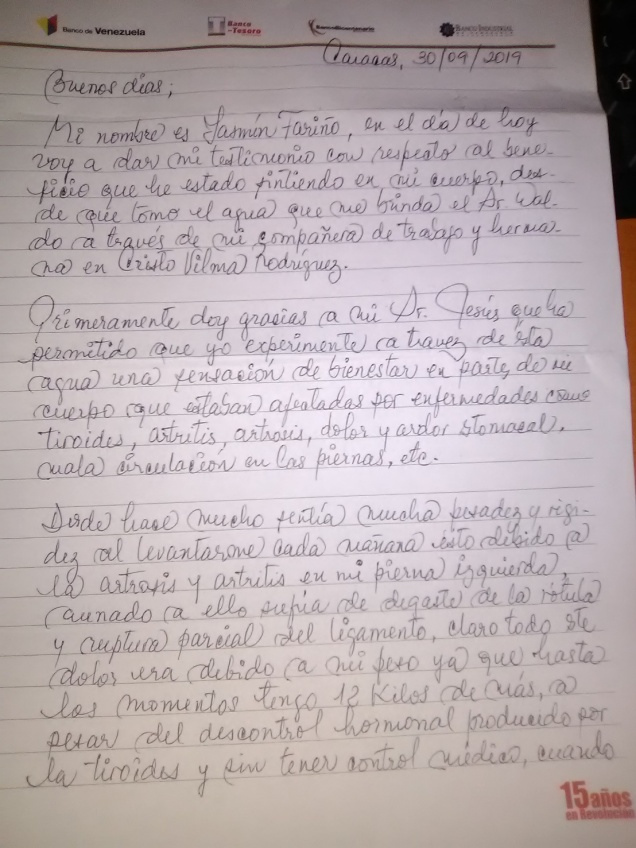 Banco de Venezuela
Banco del Tesoro
Banco Bicentenario
Banco Industrial
Caracas, 30/09/2019
Buenos días;
Mi nombre es Yasmín Fariño, en el día de hoy
voy a dar mi testimonio con respeto al bene-
ficio que he estado sintiendo en mi cuerpo, des-
de que tomo el agua que me brinda el Dr. Wal-
do a través de mi compañera de trabajo y herma-
na en Cristo Vilma Rodríguez.
Primeramente doy gracias a mi Dr. Jesús que ha
permitido que yo experimente a travez de ésta
agua una sensación de bienestar en partes de mi
cuerpo que estaban afectadas por enfermedades como
tiroides, artritis, artrosis, dolor y ardor stomacal,
mala circulación en las piernas, etc.
Desde hace mucho sentía mucha pesadez y rigi-
dez al levantarme cada mañana esto debido a
la artrosis y artritis en mi pierna izquierda,
aunado a ello sufría de degaste de la rótula
y ruptura parcial del ligamento, claro todo ste
dolor era debido a mi peso ya que hasta
los momentos tengo 12 Kilos de más, a
pesar del descontrol hormonal producido por
la tiroides y sin tener control médico, cuando
15 años
en Revolución